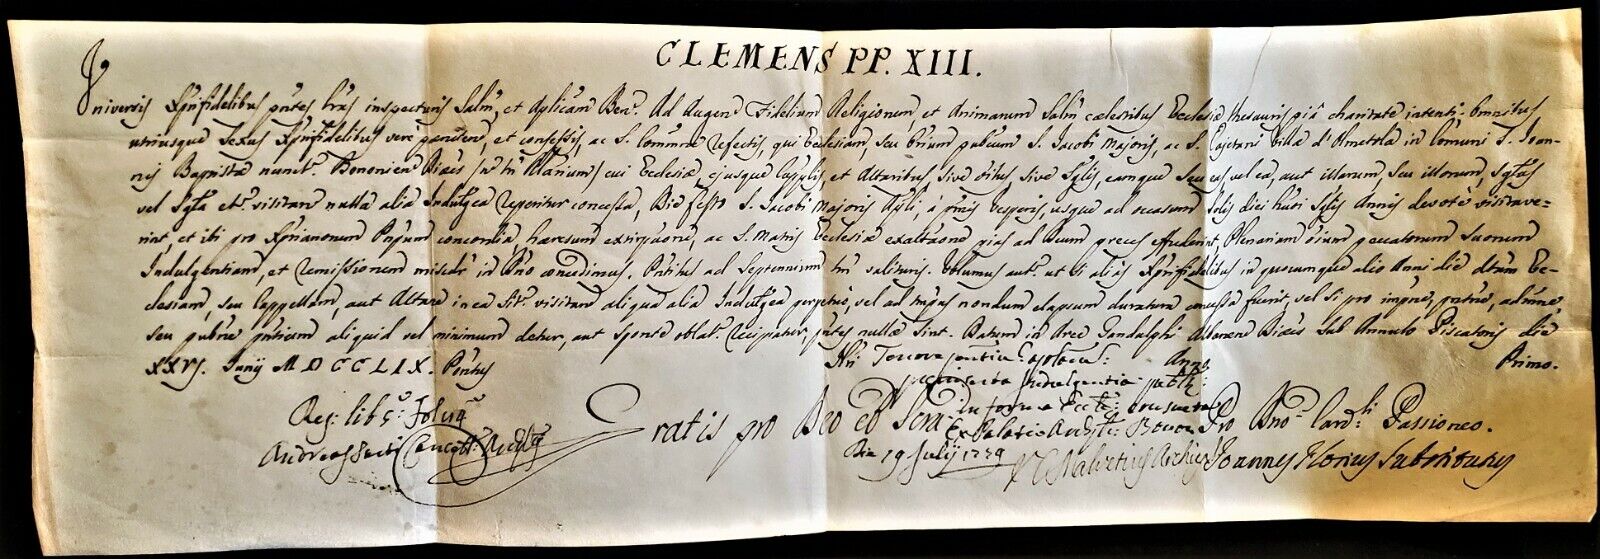 CLEMENS PP. XIII.
Universis Xpnifidelibus pntes lras inspecturis Salm, et Aplicam Ben. Ad Augend Fidelium Religionem, et Animarum Salm cœlestibus Ecclesiæ thesauris piâ charitate intenti omnibus
utriusque Sexus Xpnifidelibus vere pœniten, et confessis, ac S. Commne refectis, qui Ecclesiam, seu Orium pubcum S. Jacobi Majoris, ac S. Cajetani Villæ d'Ometola in Comuni S. Joan-
nis Baptistæ nuncti Bononien Diæcis cui Ecclesiæ, ejusque Capplis, et Altaribus sive oibus sive Sglis, eamque seu eas vel ea, aut illarum, seu illorum, Sglas
vel Sgla etc. visitan nulla alia Indulgea reperitur concessa, Die festo S. Jacobi Majoris Apli, à pmis Vesperis, usque ad occasum Solis diei hui Sglis Annis devotè visitave-
rint, et ibi pro Xpnianorum Pnpum concordia, hæresum extirpaone, ac S. Matris Ecclesiæ exaltaone pias ad Deum preces effuderint, Plenariam oium peccatorum suorum
Indulgentiam, et remissionem misedr in Dno concedimus. Pntibus ad Septennium tm valituris. Volumus aut. ut si aliàs Xpnifidelibus in quocumque alio Anni die dtam Ec-
clesiam, seu Cappellam, aut Altare in ea sit. visitan aliqua alia Indulgea perpetuò, vel ad tempus nondum elapsum duratura concessa fuerit, vel si pro impne, pntne, admne
seu pubne pntium aliquid vel minimum detur, aut sponte oblat. recipiatur, pntes nullæ sint. Datum in Arce Gandulphi Albanen Diæcis sub Annulo Piscatoris die
XXVI. Junij MDCCLIX. Pontus Nri Anno Primo.
Indulgentia
Reg: lib
in forma Eccle: consueta
Gratis pro Deo et Pro Dno Cardli Passioneo.
Ex Palatio
Andreas
Die 19 Julij 1759
Joannes Florius Substitutus